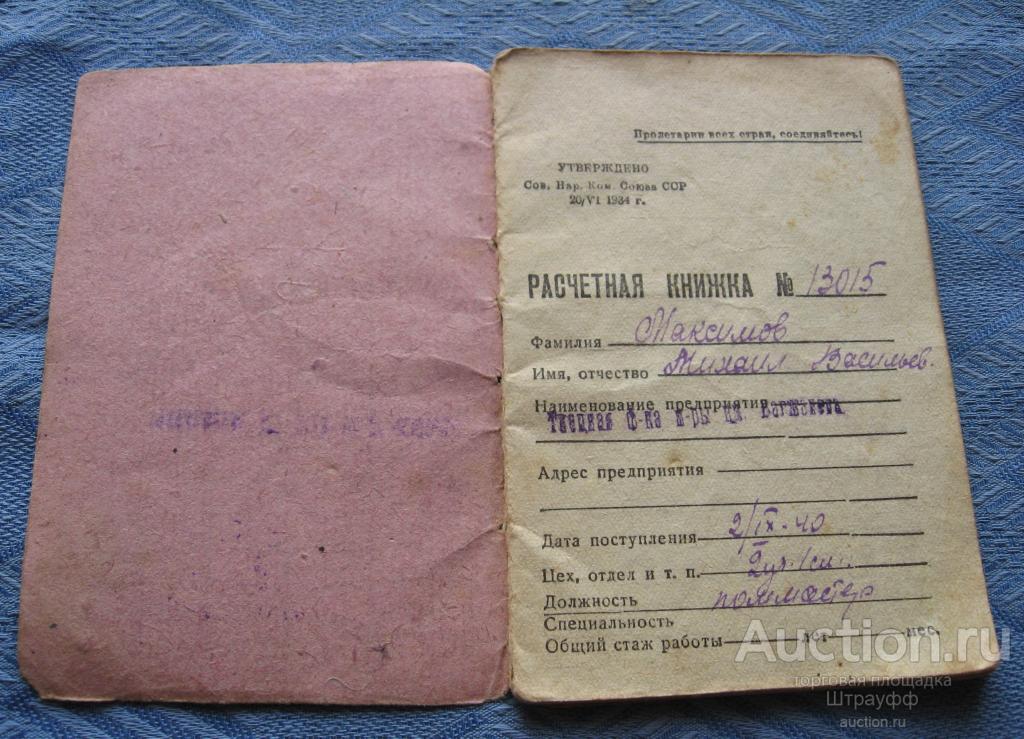 Пролетарии всех стран, соединяйтесь!
УТВЕРЖДЕНО
Сов. Нар. Ком. Союза ССР
20/VI 1934 г.
РАСЧЕТНАЯ КНИЖКА № 13015
Фамилия Максимов
Имя, отчество Михаил Васильев.
Наименование предприятия
Ткацкая ф-ка м-ры им.
Адрес предприятия
Дата поступления 2/IX-40
Цех, отдел и т. п.
Должность поммастер
Специальность
Общий стаж работы лет мес.
Auction.ru
торговая площадка
Штрауфф
auction.ru